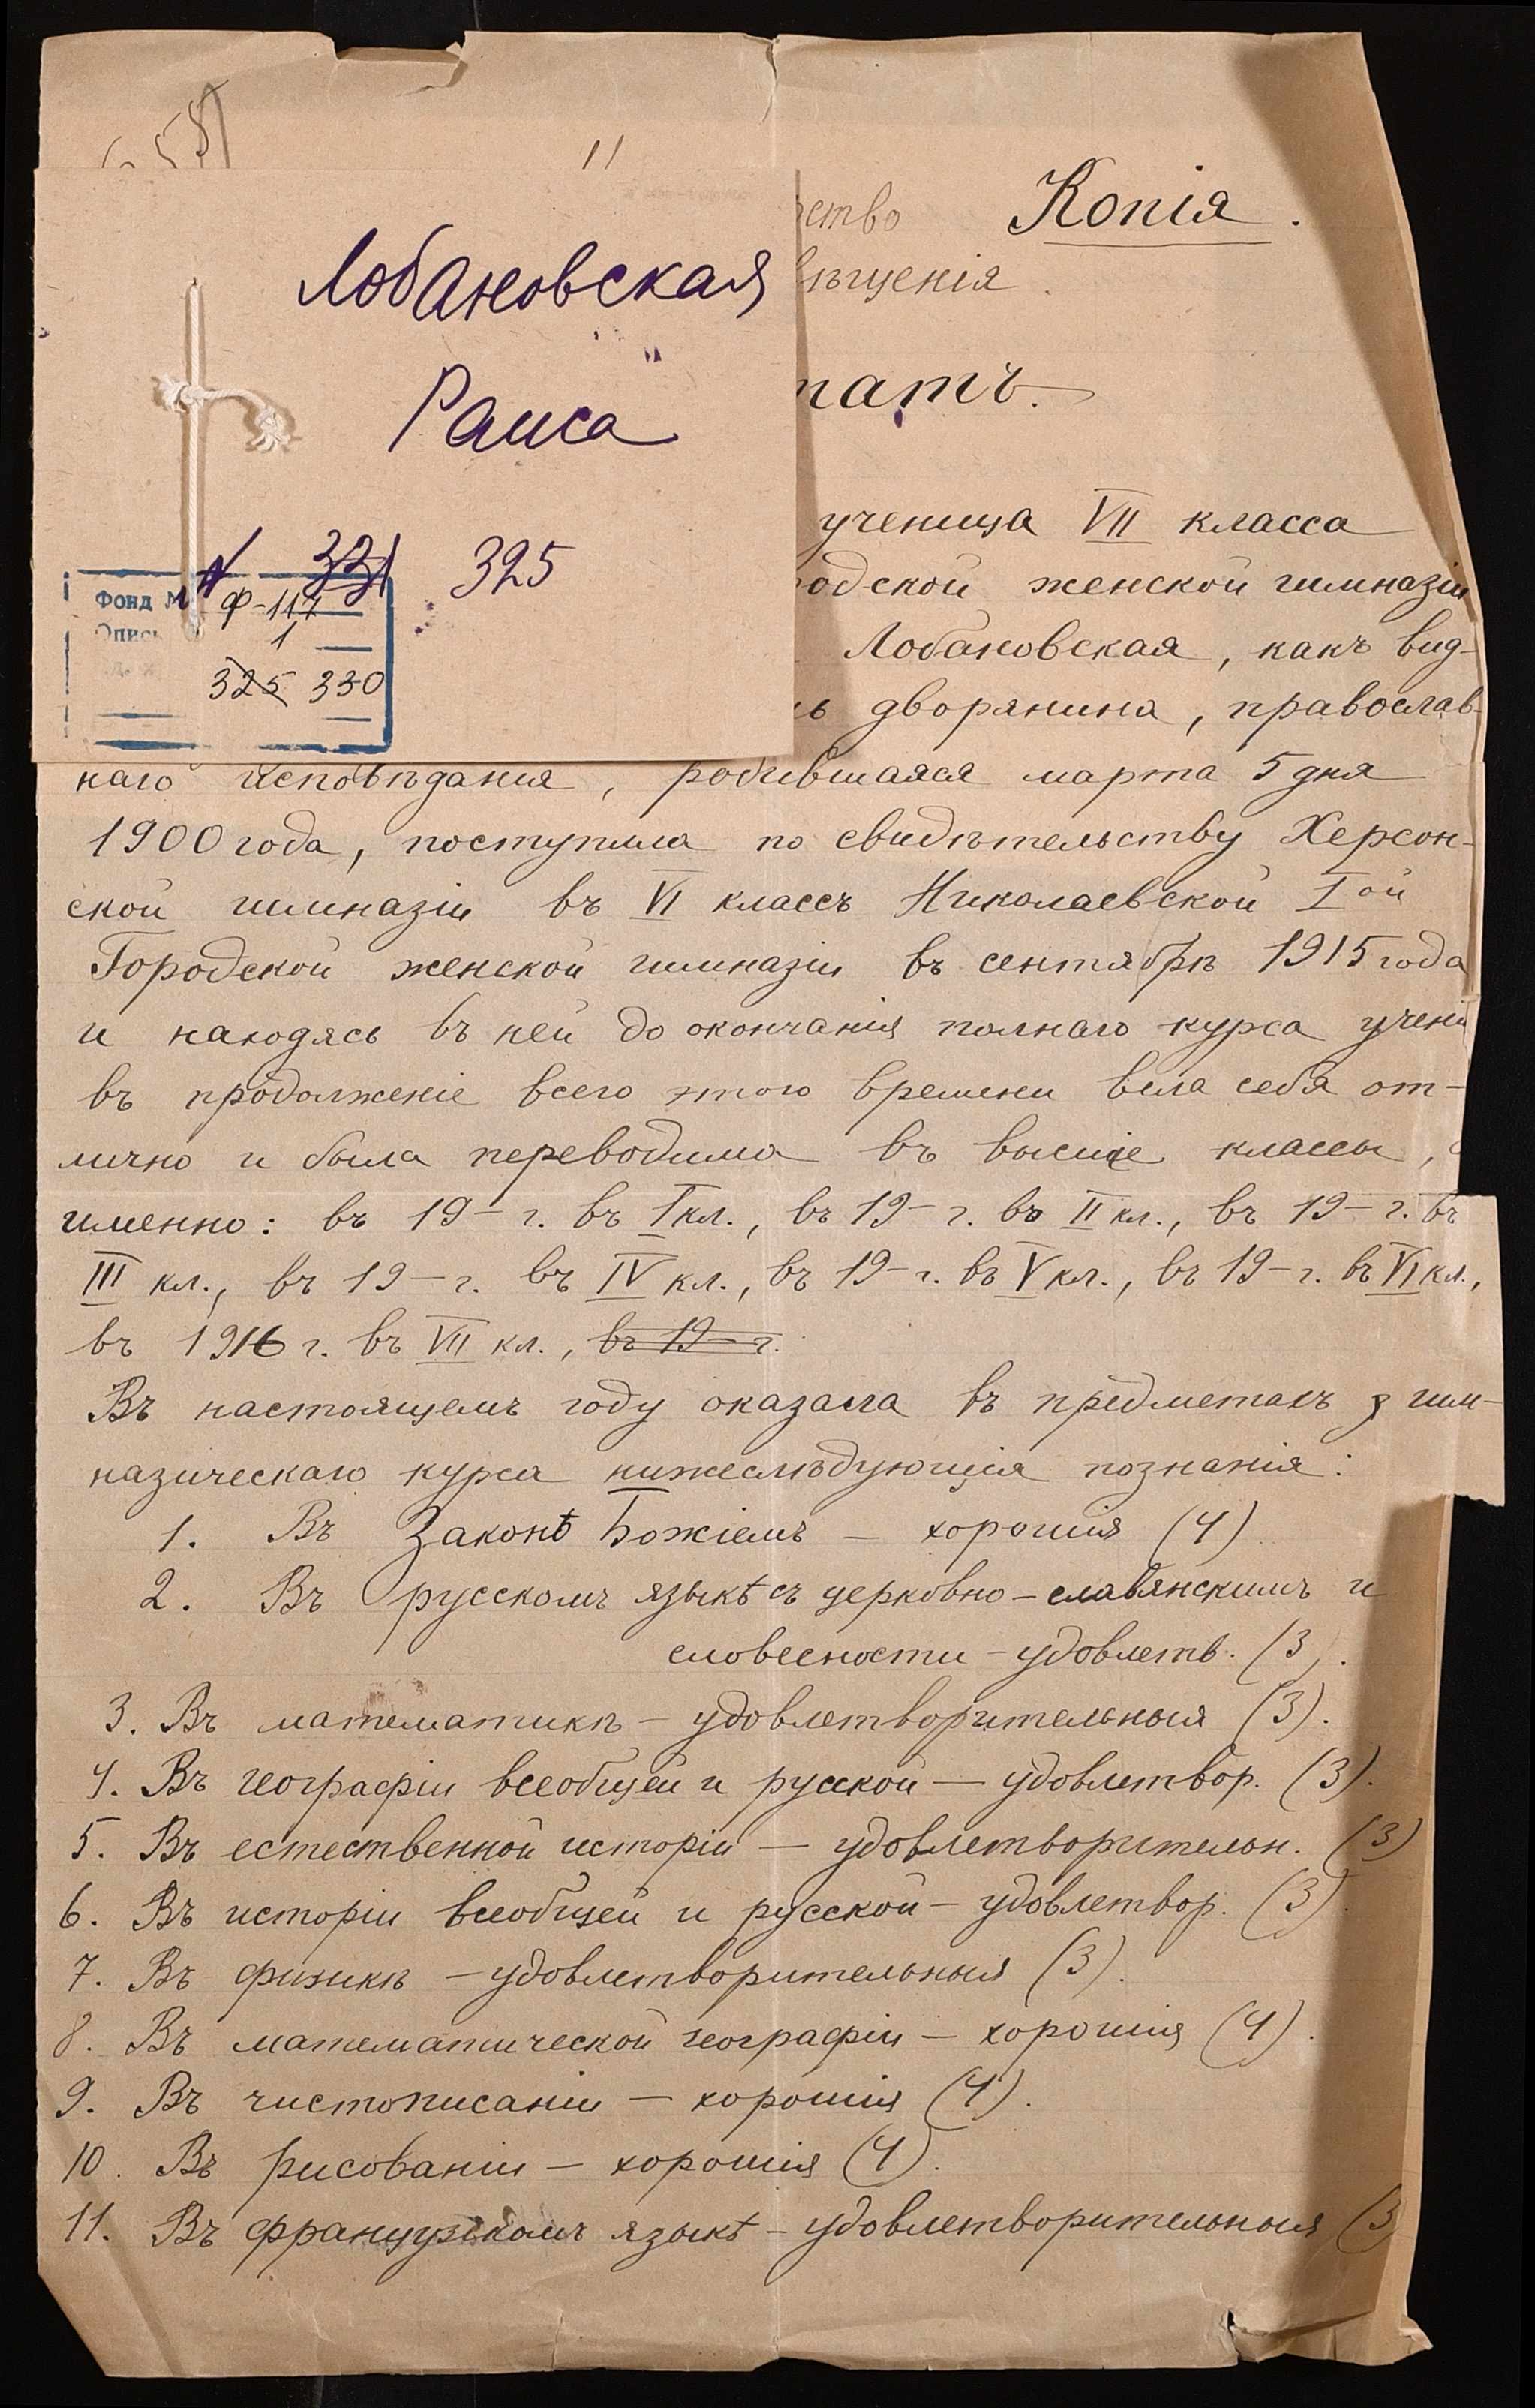 11
Лобановская
Раиса
№ 331 325
Фонд №
Ф-117
Опись
1
325 330
ство Копія.
ѣщенія.
татъ.
ученица VII класса
одской женской гимназіи
Лобановская, какъ вид-
ь дворянина, православ-
наго исповѣданія, родившаяся марта 5 дня
1900 года, поступила по свидѣтельству Херсон-
ской гимназіи въ VI классъ Николаевской I ой
Городской женской гимназіи въ сентябрѣ 1915 года
и находясь въ ней до окончанія полнаго курса учені
въ продолженіе всего этого времени вела себя от-
лично и была переводима въ высшіе классы,
именно: въ 19— г. въ I кл., въ 19— г. въ II кл., въ 19— г. въ
III кл., въ 19— г. въ IV кл., въ 19— г. въ V кл., въ 19— г. въ VI кл.,
въ 1916 г. въ VII кл., въ 19— г.
Въ настоящемъ году оказала въ предметахъ гим-
назическаго курса нижеслѣдующія познанія:
1. Въ Законѣ Божіемъ — хорошія (4)
2. Въ русскомъ языкѣ съ церковно-славянскимъ и
словесности — удовлетв. (3).
3. Въ математикѣ — удовлетворительныя (3).
4. Въ географіи всеобщей и русской — удовлетвор. (3).
5. Въ естественной исторіи — удовлетворительн. (3)
6. Въ исторіи всеобщей и русской — удовлетвор. (3).
7. Въ физикѣ — удовлетворительныя (3).
8. Въ математической географіи — хорошія (4).
9. Въ чистописаніи — хорошія (4).
10. Въ рисованіи — хорошія (4).
11. Въ французскомъ языкѣ — удовлетворительныя (3